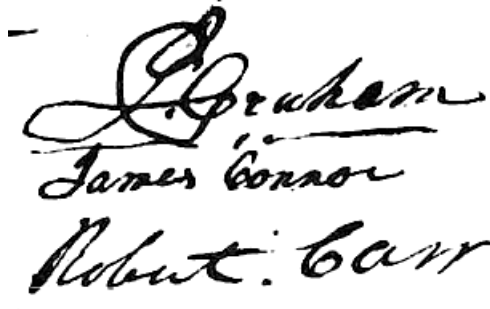 J. Graham
James Connor
Robert. Carr